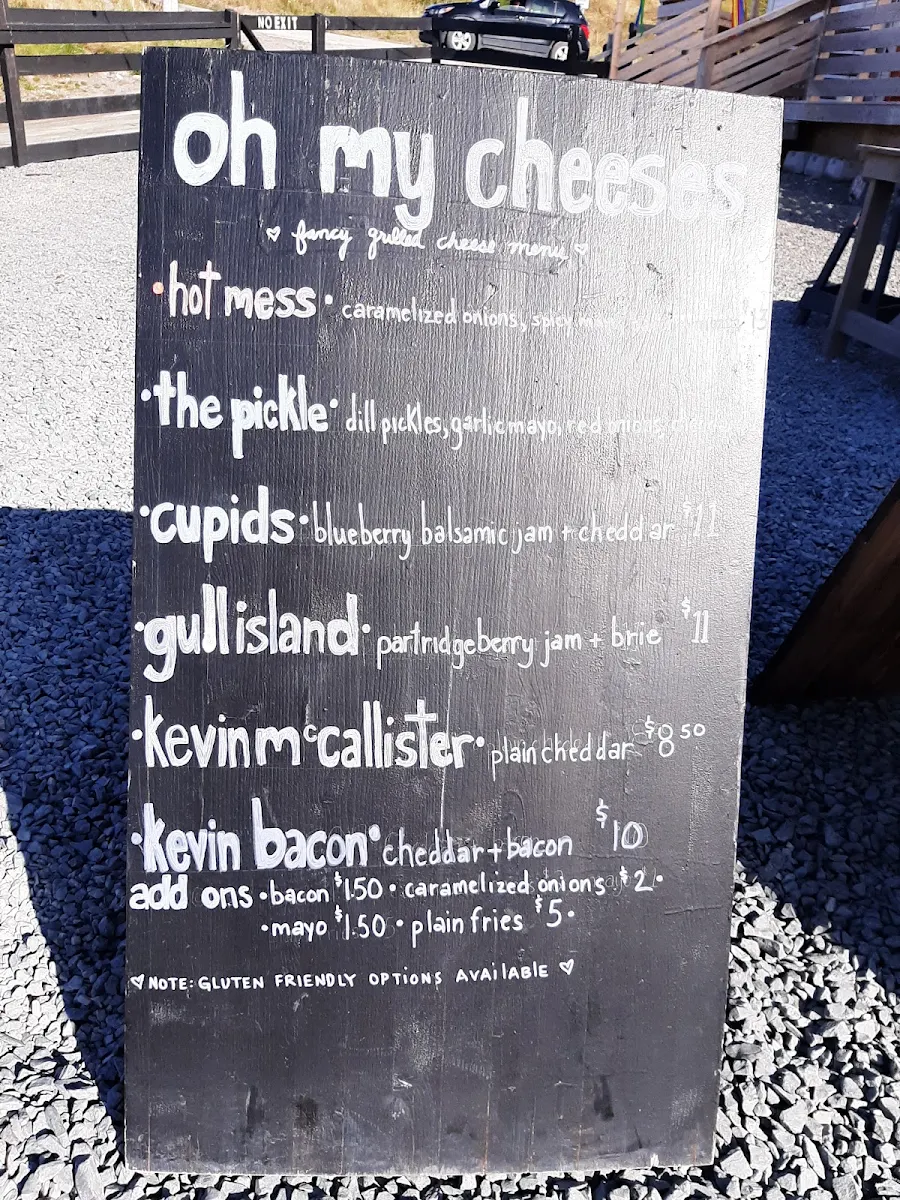 NO EXIT
oh my cheeses
♡ fancy grilled cheese menu ♡
• hot mess • caramelized onions, spicy mayo 13
• the pickle • dill pickles, garlic mayo, red onions,
• cupids • blueberry balsamic jam + cheddar $11
• gull island • partridgeberry jam + brie $11
• kevin mccallister • plain cheddar $8 50
• kevin bacon • cheddar + bacon $10
add ons • bacon $1.50 • caramelized onions $2 •
• mayo $1.50 • plain fries $5 •
♡ NOTE: GLUTEN FRIENDLY OPTIONS AVAILABLE ♡